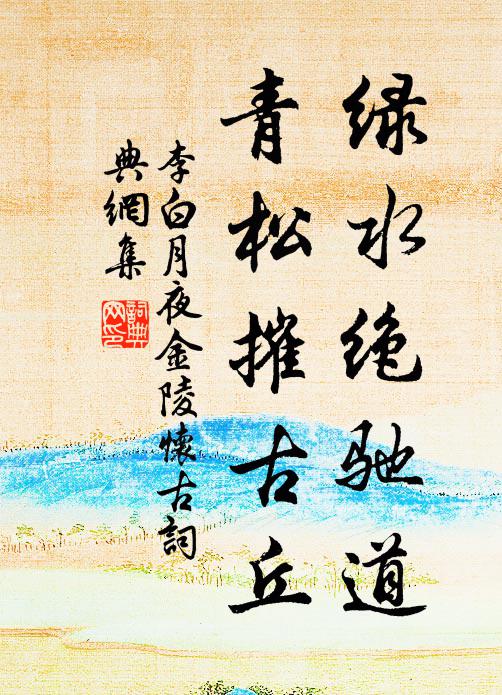 绿水绝驰道
青松摧古丘
李白月夜金陵懷古詞
典網集
詞典
网印